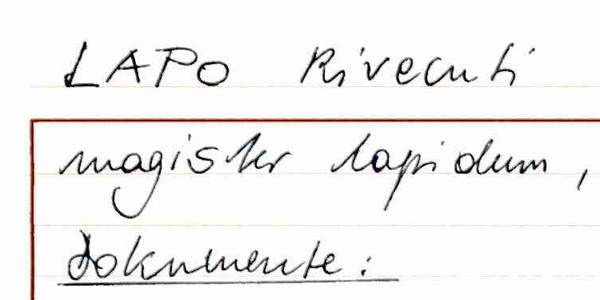 LAPO Rivecuti
magister lapidum,
Dokumente: